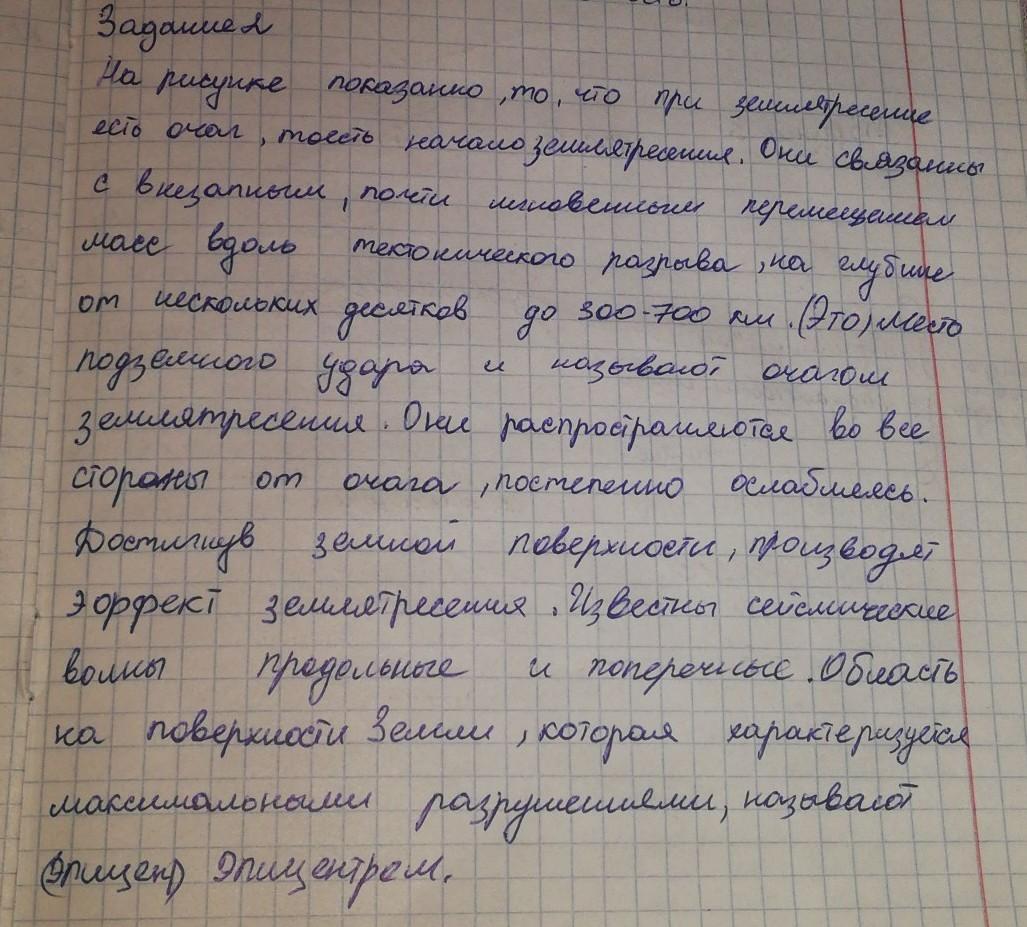 Задание 2
На рисунке показанно, то, что при землятресение
есть очаг, тоесть начало землятресения. Они связанны
с внезапным, почти мгновенным перемещением
масс вдоль тектонического разрыва, на глубине
от нескольких десятков до 300-700 км. (Это) Место
подземного удара и называют очагом
землятресения. Они распространяются во все
стораны от очага, постепенно ослабляясь.
Достигнув земной поверхности, производят
эффект землятресения. Известны сейсмические
волны продольные и поперечные. Область
на поверхности Земли, которая характеризуется
максимальными разрушениями, называют
(Эпицен) Эпицентрем.